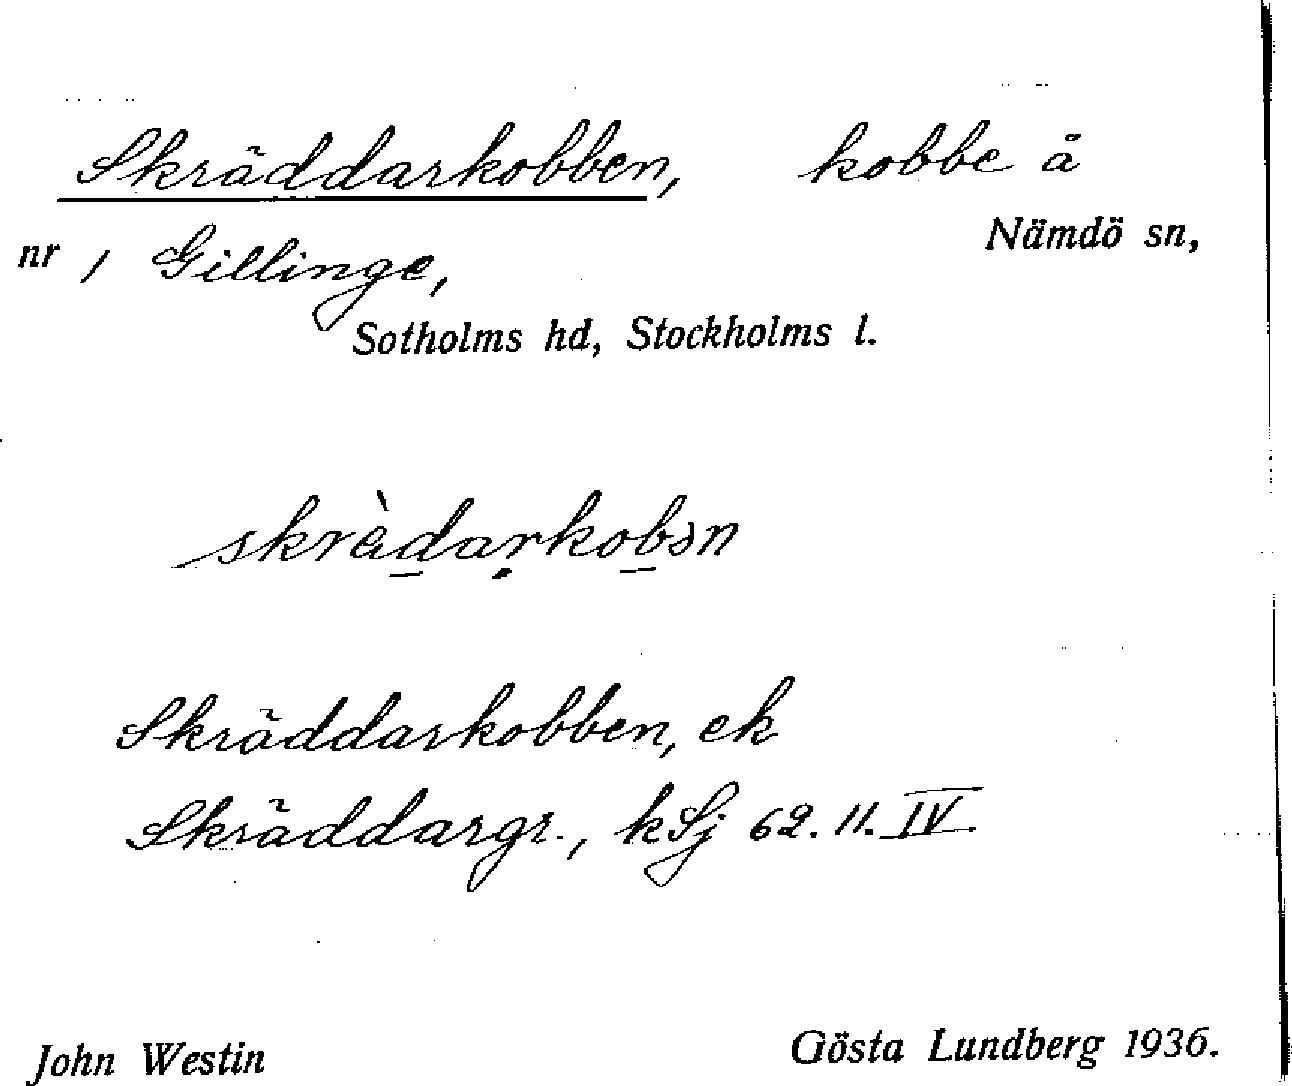 Skräddarkobben, kobbe å
Nämdö sn,
nr 1 Gillinge,
Sotholms hd, Stockholms l.
skrädarkobən
Skräddarkobben, ek
Skräddargr., kSj 62. 11. IV.
John Westin
Gösta Lundberg 1936.